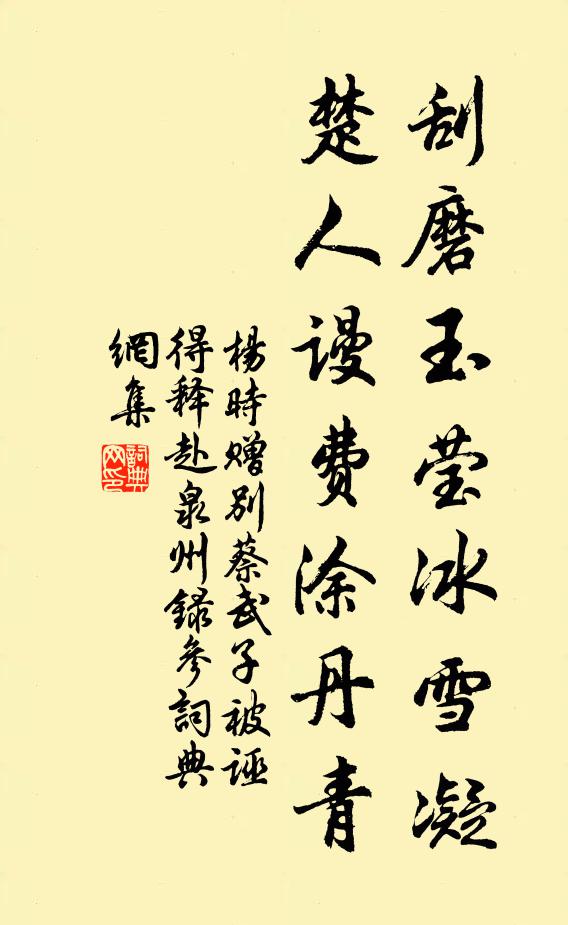 刮磨玉莹冰雪凝
楚人谩费涂丹青
杨時赠别蔡武子被诬
得释赴泉州録參詞典
網集
詞典
网印